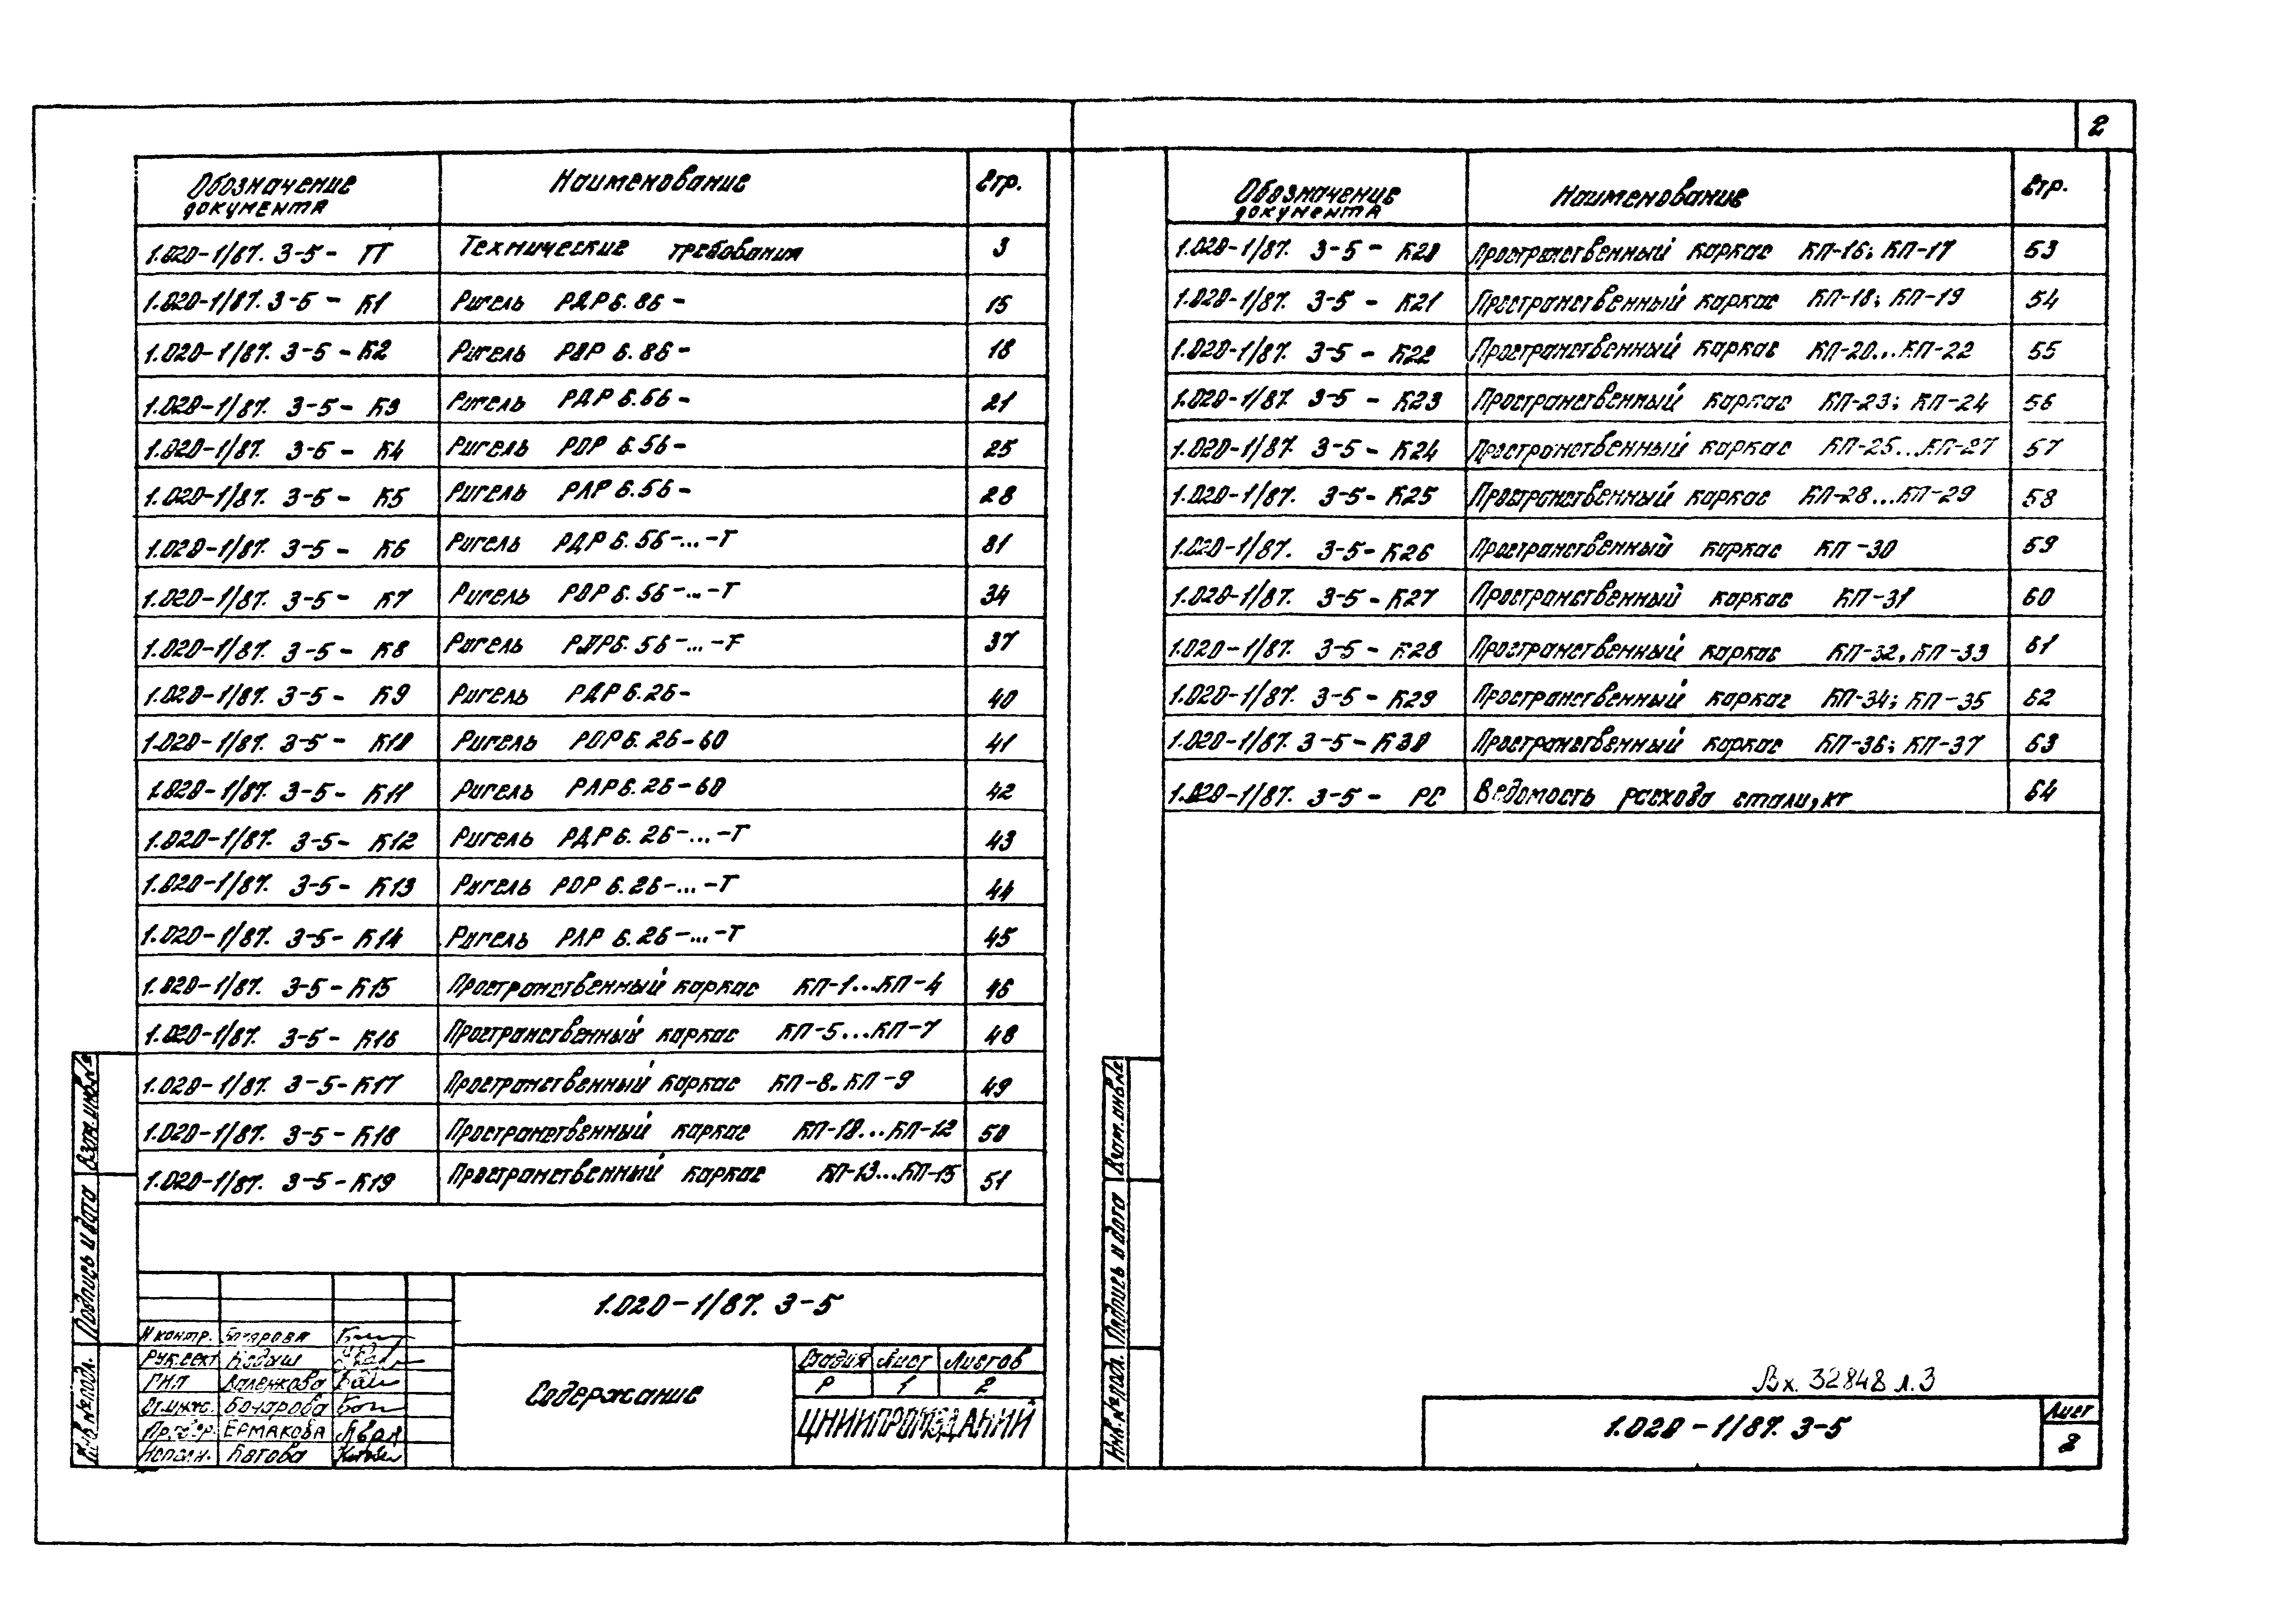 2
Обозначение документа Наименование Стр.
1.020-1/87. 3-5 - ТТ Технические требования 3
1.020-1/87. 3-5 - К1 Ригель РДР 6.86- 15
1.020-1/87. 3-5 - К2 Ригель РОР 6.86- 18
1.020-1/87. 3-5 - К3 Ригель РДР 6.56- 21
1.020-1/87. 3-5 - К4 Ригель РОР 6.56- 25
1.020-1/87. 3-5 - К5 Ригель РЛР 6.56- 28
1.020-1/87. 3-5 - К6 Ригель РДР 6.56-...-Т 31
1.020-1/87. 3-5 - К7 Ригель РОР 6.56-...-Т 34
1.020-1/87. 3-5 - К8 Ригель РЛР 6.56-...-Т 37
1.020-1/87. 3-5 - К9 Ригель РДР 6.26- 40
1.020-1/87. 3-5 - К10 Ригель РОР 6.26-60 41
1.020-1/87. 3-5 - К11 Ригель РЛР 6.26-60 42
1.020-1/87. 3-5 - К12 Ригель РДР 6.26-...-Т 43
1.020-1/87. 3-5 - К13 Ригель РОР 6.26-...-Т 44
1.020-1/87. 3-5 - К14 Ригель РЛР 6.26-...-Т 45
1.020-1/87. 3-5 - К15 Пространственный каркас КП-1...КП-4 46
1.020-1/87. 3-5 - К16 Пространственный каркас КП-5...КП-7 48
1.020-1/87. 3-5 - К17 Пространственный каркас КП-8, КП-9 49
1.020-1/87. 3-5 - К18 Пространственный каркас КП-10...КП-12 50
1.020-1/87. 3-5 - К19 Пространственный каркас КП-13...КП-15 51
1.020-1/87. 3-5
Н контр. Бочарова
Рук.сект Кодыш
ГНП
Ст.инж. Бочарова
Провер. Ермакова
Исполн. Котова
Содержание
Стадия Лист Листов
Р 1 2
ЦНИИПРОМЗДАНИЙ
Взам.инв.№
Подпись и дата
Инв.№ подл.
Обозначение документа Наименование Стр.
1.020-1/87. 3-5 - К20 Пространственный каркас КП-16; КП-17 53
1.020-1/87. 3-5 - К21 Пространственный каркас КП-18; КП-19 54
1.020-1/87. 3-5 - К22 Пространственный каркас КП-20...КП-22 55
1.020-1/87. 3-5 - К23 Пространственный каркас КП-23; КП-24 56
1.020-1/87. 3-5 - К24 Пространственный каркас КП-25...КП-27 57
1.020-1/87. 3-5 - К25 Пространственный каркас КП-28...КП-29 58
1.020-1/87. 3-5 - К26 Пространственный каркас КП-30 59
1.020-1/87. 3-5 - К27 Пространственный каркас КП-31 60
1.020-1/87. 3-5 - К28 Пространственный каркас КП-32, КП-33 61
1.020-1/87. 3-5 - К29 Пространственный каркас КП-34; КП-35 62
1.020-1/87. 3-5 - К30 Пространственный каркас КП-36; КП-37 63
1.020-1/87. 3-5 - РС Ведомость расхода стали, кг 64
Взам.инв.№
Подпись и дата
Инв.№ подл.
Вх. 32848 л.3
1.020-1/87. 3-5
Лист
2